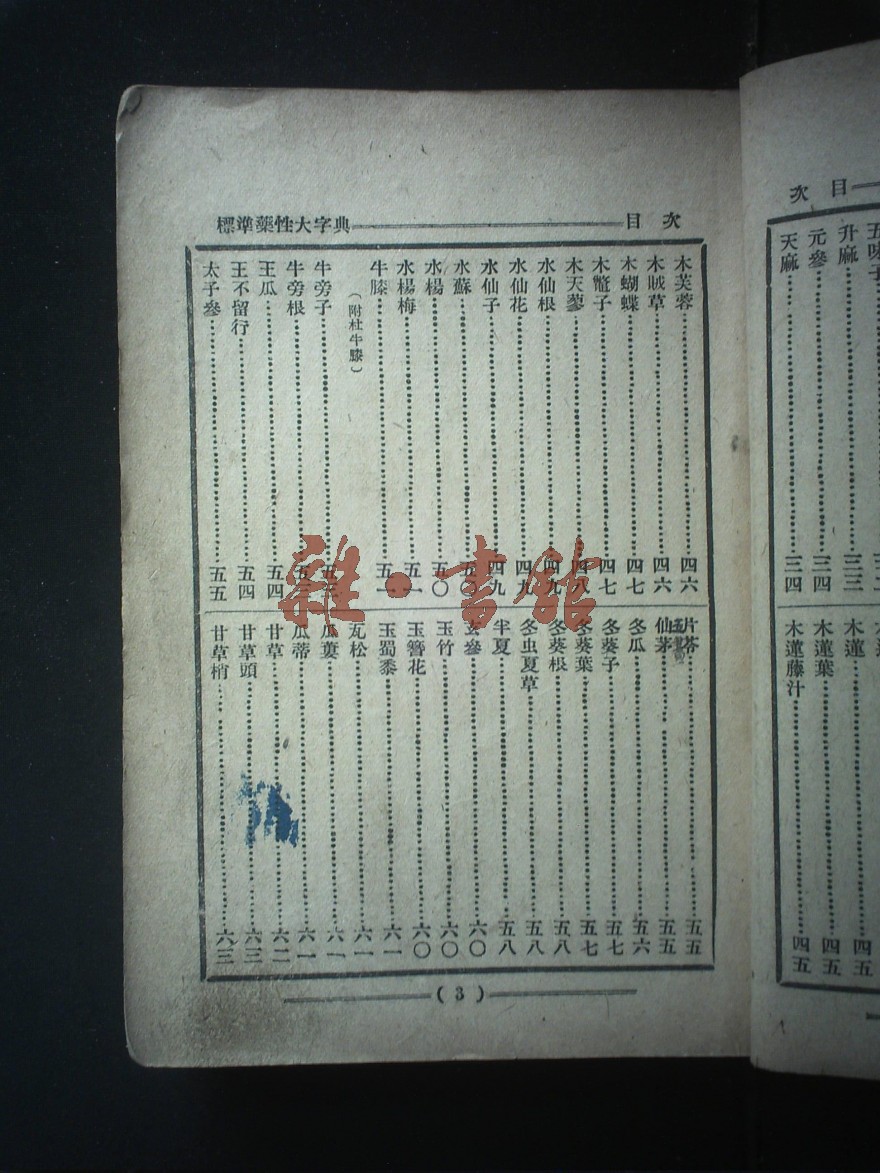 標準藥性大字典 目次
木芙蓉 四六
木賊草 四六
木蝴蝶 四七
木鼈子 四七
木天蓼 四八
水仙根 四九
水仙花 四九
水仙子 四九
水蘇 五〇
水楊 五〇
水楊梅 五一
牛膝 五一
(附杜牛膝)
牛旁子
牛旁根
王瓜 五四
王不留行 五四
太子參 五五
片苓 五五
仙茅 五五
冬瓜 五六
冬葵子 五七
冬葵葉 五七
冬葵根 五八
冬虫夏草 五八
半夏 五八
玄參 六〇
玉竹 六〇
玉簪花 六〇
玉蜀黍 六一
瓦松 六一
瓜蔞 六一
瓜蒂 六一
甘草 六二
甘草頭 六三
甘草梢 六三
(3)
雜·書館
目次
五味子
升麻 三三
元參 三四
天麻 三四
木蓮 四五
木蓮葉 四五
木蓮藤汁 四五